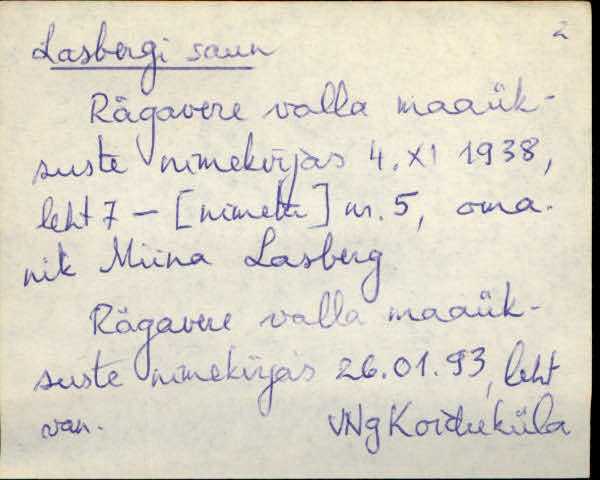 Lasbergi saun 2
Rägavere valla maaük-
suste nimekirjas 4. XI 1938,
leht 7 – [nimeta] nr. 5, oma-
nik Miina Lasberg
Rägavere valla maaük-
suste nimekirjas 26.01.93, leht
van. VNg Koidu küla